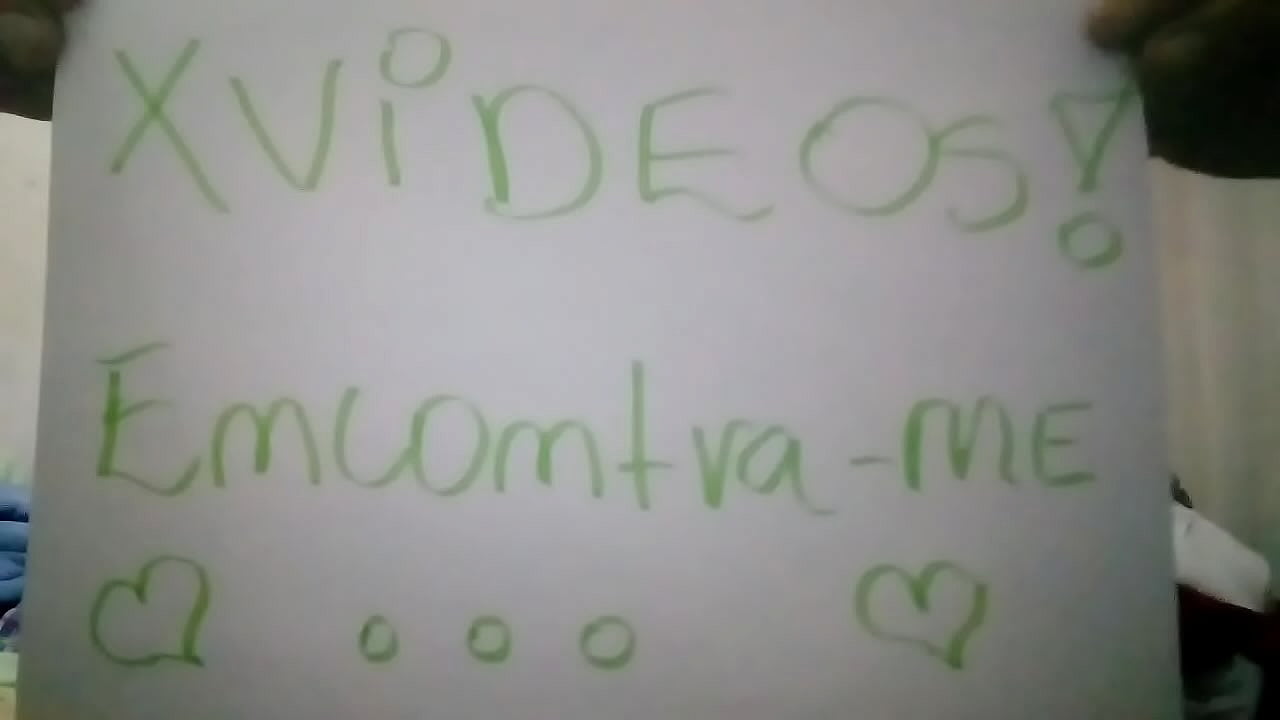 XViDEOS!
Emcomtra-mE
♡ ... ♡